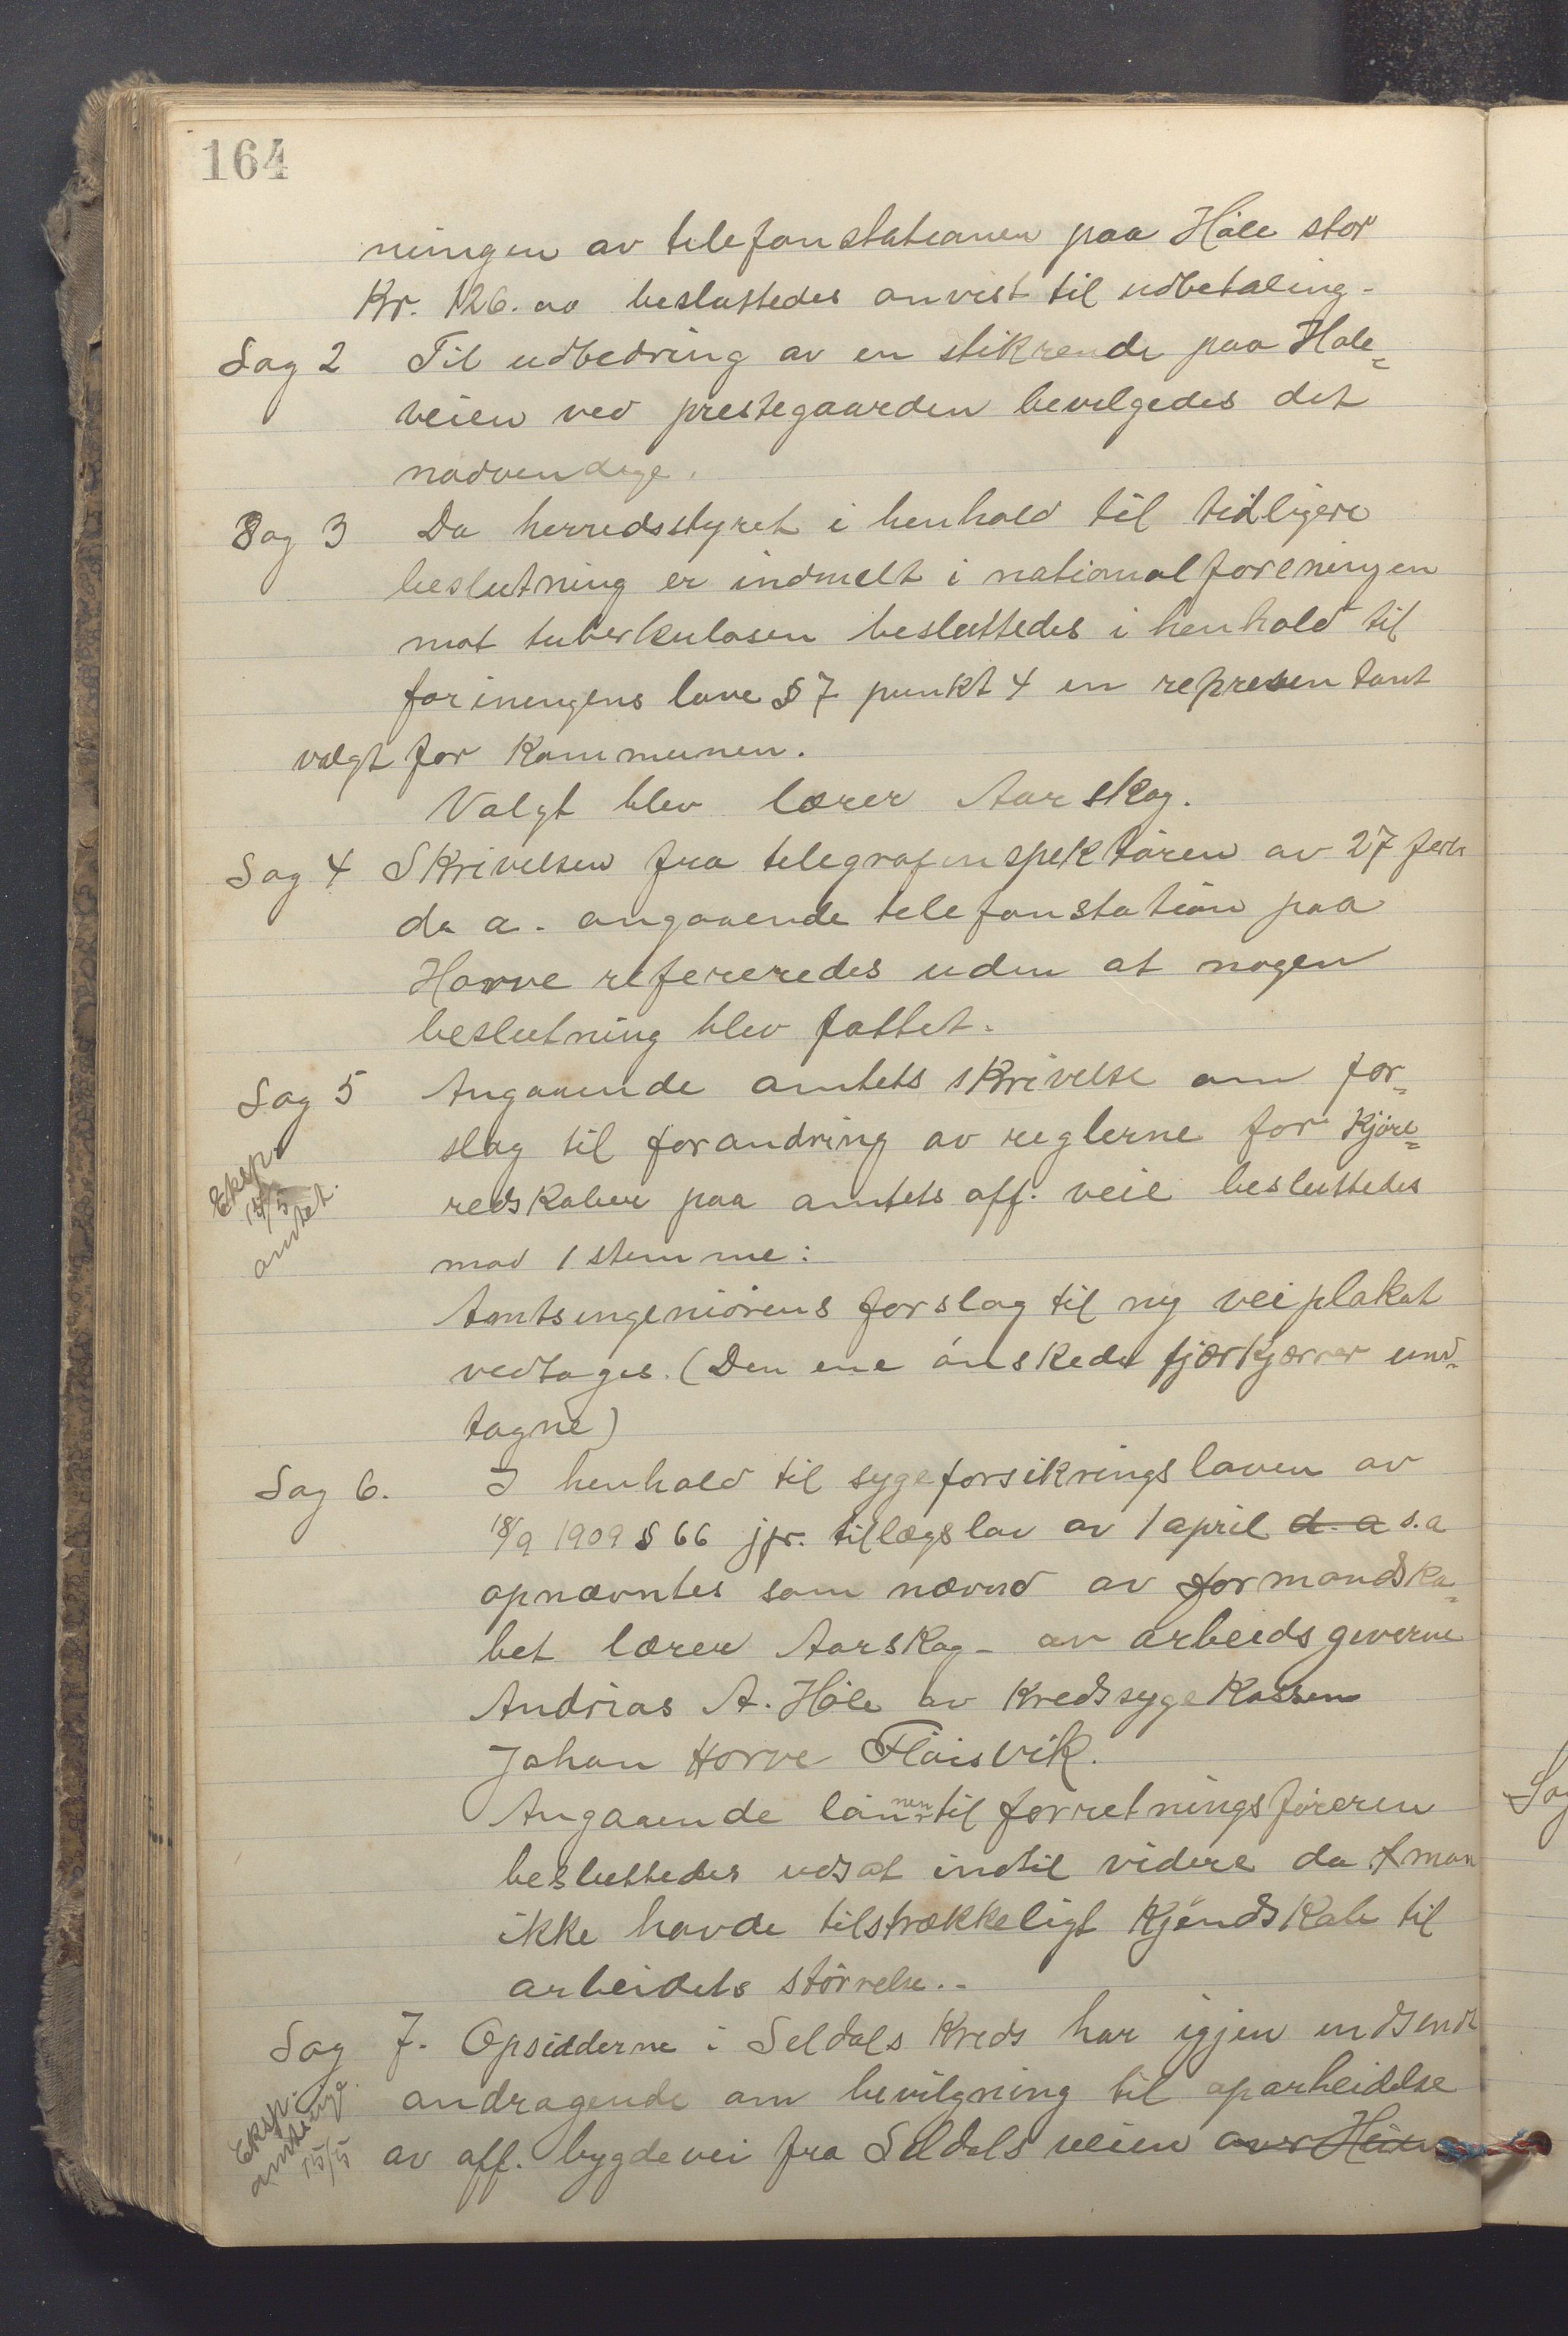 164
ningen av telefonstationen paa Høle stor
Kr. 126.00 besluttedes anvist til udbetaling.
Sag 2 Til udbedring av en stikrende paa Høle=
veien ved prestegaarden bevilgedes det
nødvendige.
Sag 3 Da herredsstyret i henhold til tidligere
beslutning er indmelt i nationalforeningen
mot tuberkulosen besluttedes i henhold til
foreningens love § 7 punkt 4 en representant
valgt for Kommunen.
Valgt blev lærer Aarskog.
Sag 4 Skrivelsen fra telegrafinspektøren av 27 febr
d. a. angaaende telefonstation paa
Horve refereredes uden at nogen
beslutning blev fattet.
Sag 5 Angaaende amtets skrivelse om for=
slag til forandring av reglerne for kjøre=
redskaber paa amtets off. veie besluttedes
mod 1 stemme:
Eksp.
15/5
amtet.
Amtsingeniørens forslag til ny veiplakat
vedtages. (Den ene ønskede fjærkjærrer und=
tagne)
Sag 6. I henhold til sygeforsikringsloven av
18/9 1909 § 66 jfr. tillægslov av 1 april d. a s.a
opnævntes som nævnd av formandska=
bet lærer Aarskog - av arbeidsgiverne
Andreas A. Høle av Kredssygekassen
Johan Horve Fløisvik.
Angaaende lønnen til forretningsføreren
besluttedes udsat indtil videre da man
ikke havde tilstrækkeligt kjendskab til
arbeidets størrelse..
Sag 7. Opsidderne i Seldals Kreds har igjen indsendt
andragende om bevilgning til oparbeidelse
av off. bygdevei fra Seldalsveien over Heien
Eksp.
amtsing.
15/5
Sag